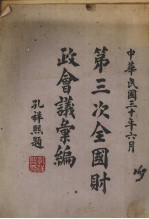 中華民國三十年六月
第三次全國財
政會議彙編
孔祥熙題